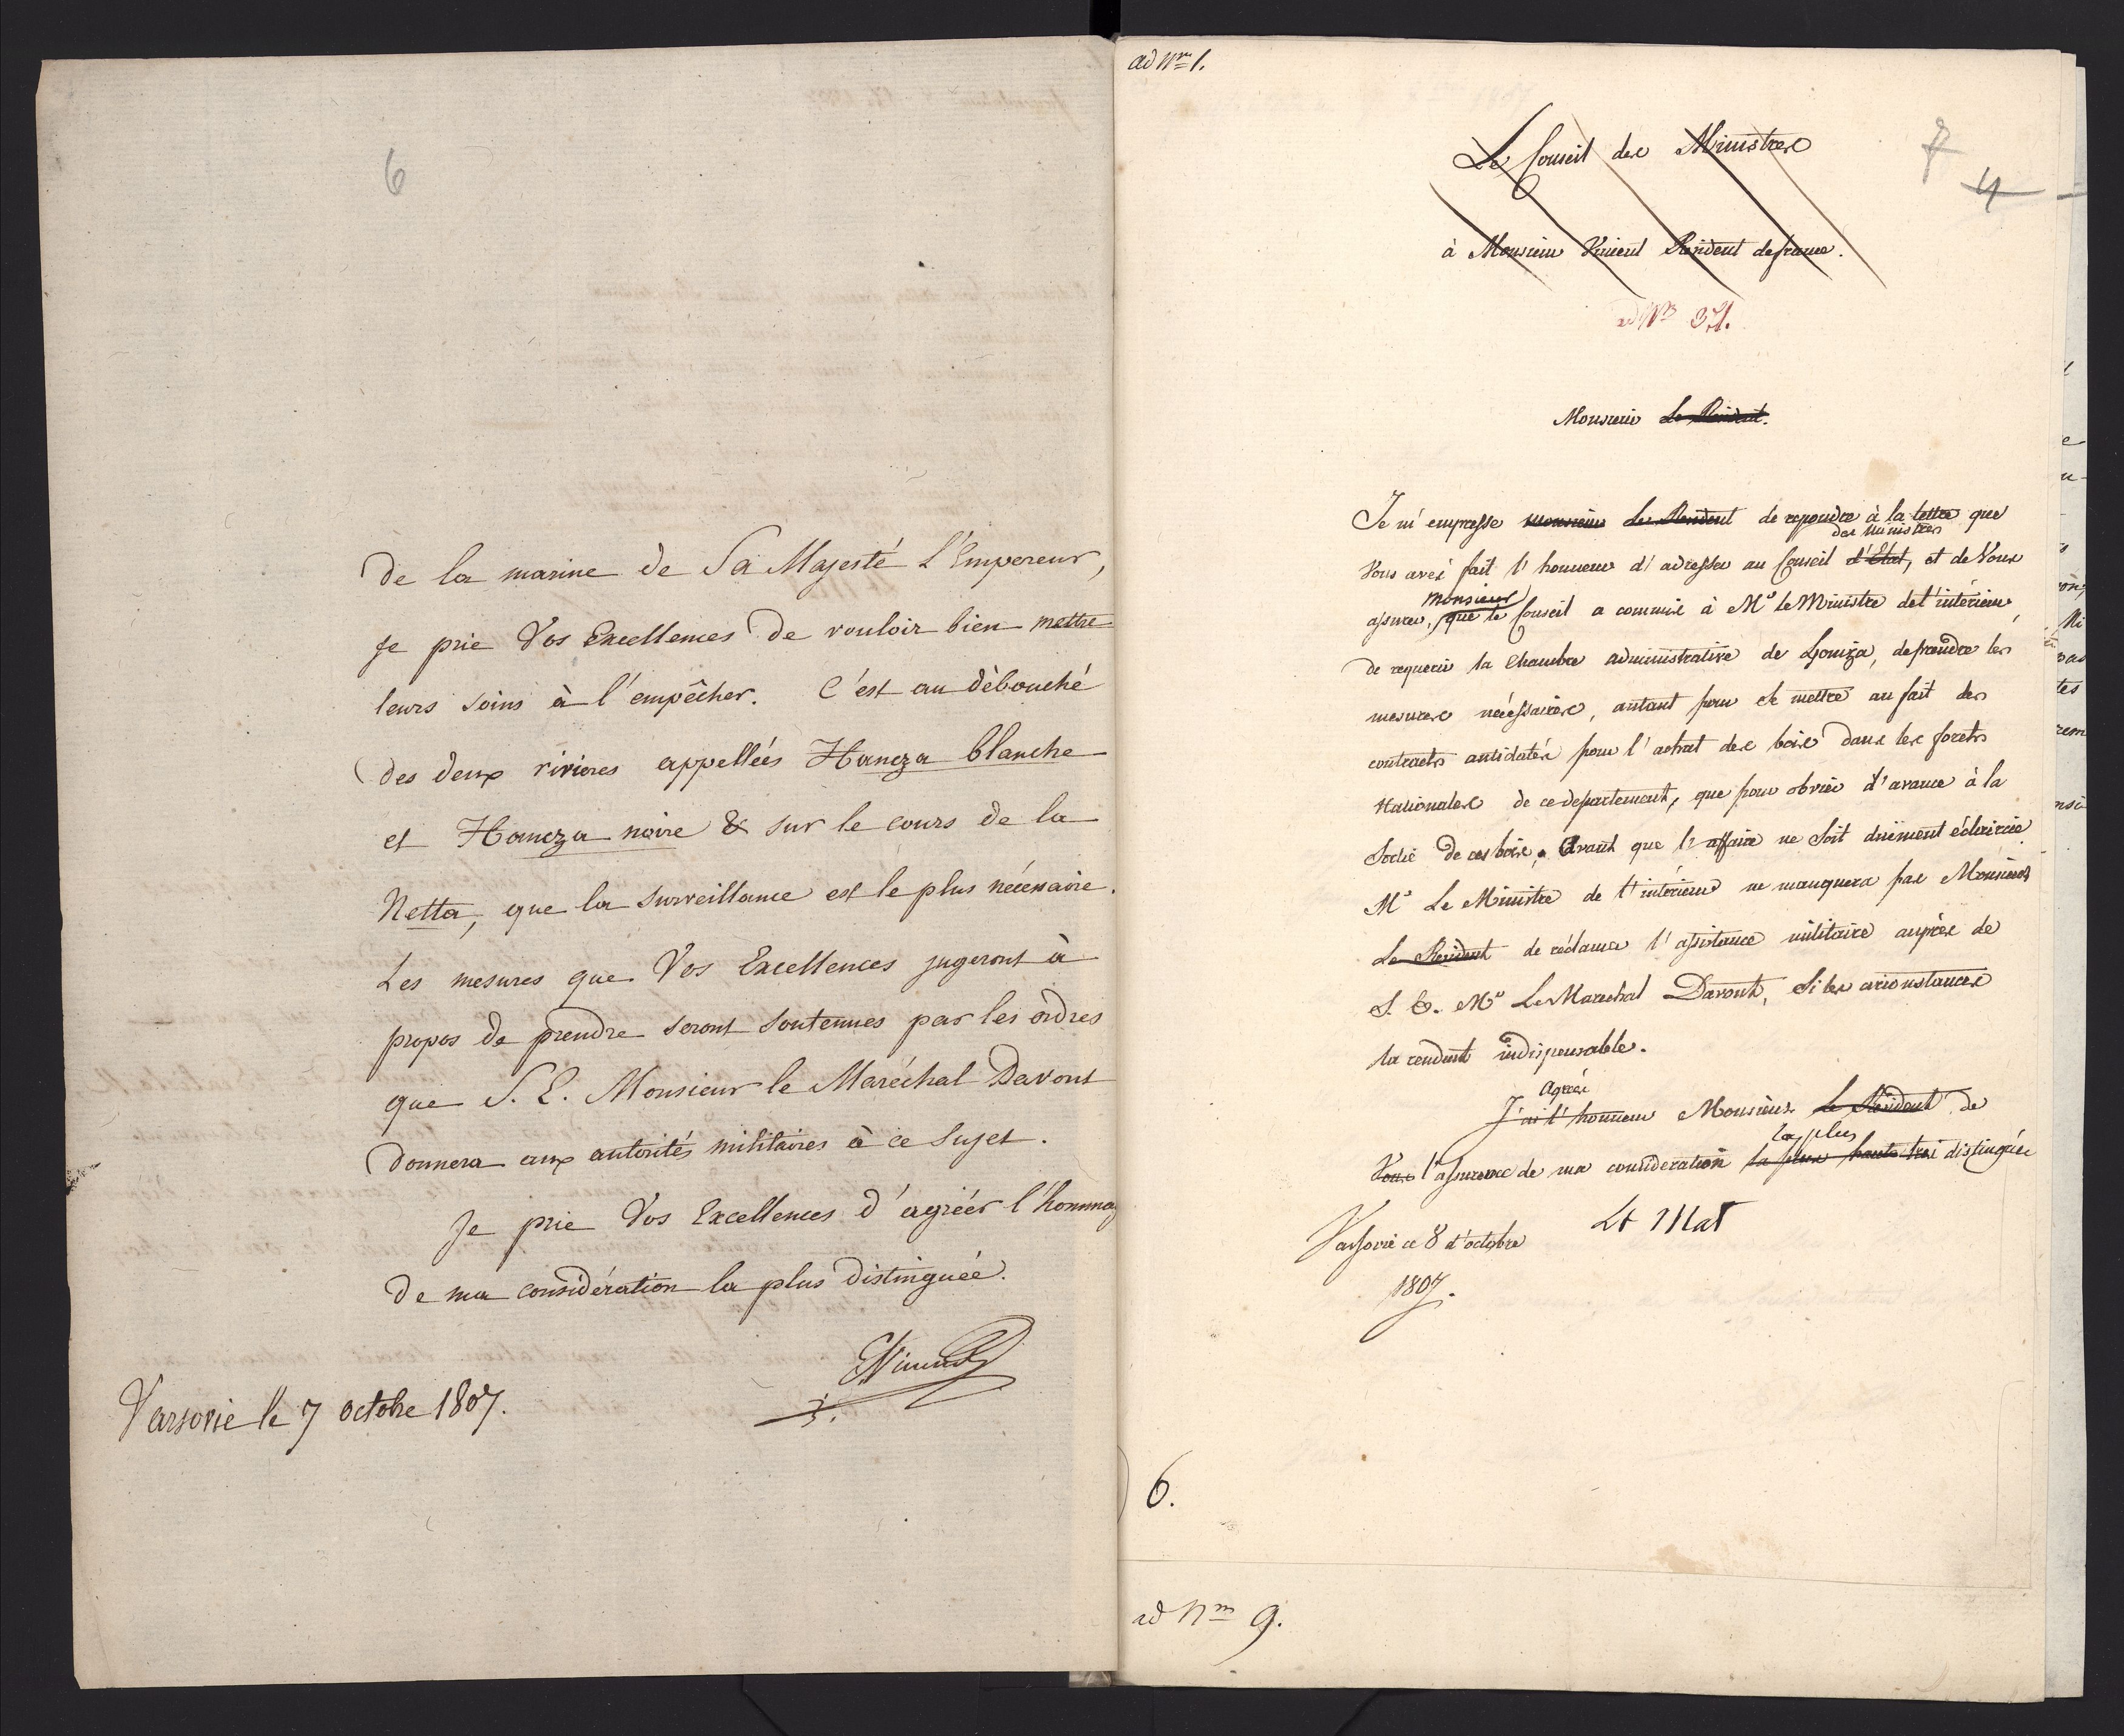 6
de la marine de Sa Majesté L'Empereur,
je prie Vos Excellences de vouloir bien mettre
leurs soins à l'empêcher. C'est au débouché
des deux rivieres appellées Hancza blanche
et Hancza noire & sur le cours de la
Netta, que la surveillance est le plus nécessaire.
Les mesures que Vos Excellences jugeront à
propos de prendre seront soutenues par les ordres
que S. E. Monsieur le Maréchal Davout
donnera aux autorités militaires à ce sujet.
Je prie Vos Excellences d'agréér l'hommag
de ma considération la plus distinguée.
EVincent
Varsovie le 7 octobre 1807.
ad Nrm 1.
Le Conseil des Ministres
7
4
à Monsieur Vincent Resident de france.
ad Nro 31.
Monsieur Le Resident.
Je m'empresse monsieur Le Resident de repondre à la lettre que
des ministres
Vous avés fait l'honneur d'adresser au Conseil d'Etat, et de Vous
monsieur
assurer, que le Conseil a commis à Mr Le Ministre de l'intérieur,
de requerir la Chambre administrative de Lomza, de prendre les
mesures nécessaires, autant pour se mettre au fait des
contracts antidatés pour l'achat des bois dans les forets
Nationales de ce departement, que pour obvier d'avance à la
sortie de ces bois, avant que l'affaire ne soit duement éclaircie.
Mr Le Ministre de l'intérieur ne manquera pas Monsieur
Le Resident de réclamer l'assistance militaire auprès de
S. E. Mr Le Marechal Davout, si les circonstances
la rendent indispensable.
Agréés
J'ai l'honneur Monsieur Le Resident de
la plus
Vous l'assurance de ma consideration la plus haute très distinguée
St Mał
Varsovie ce 8 d'octobre
1807.
6.
ad Nrm 9.